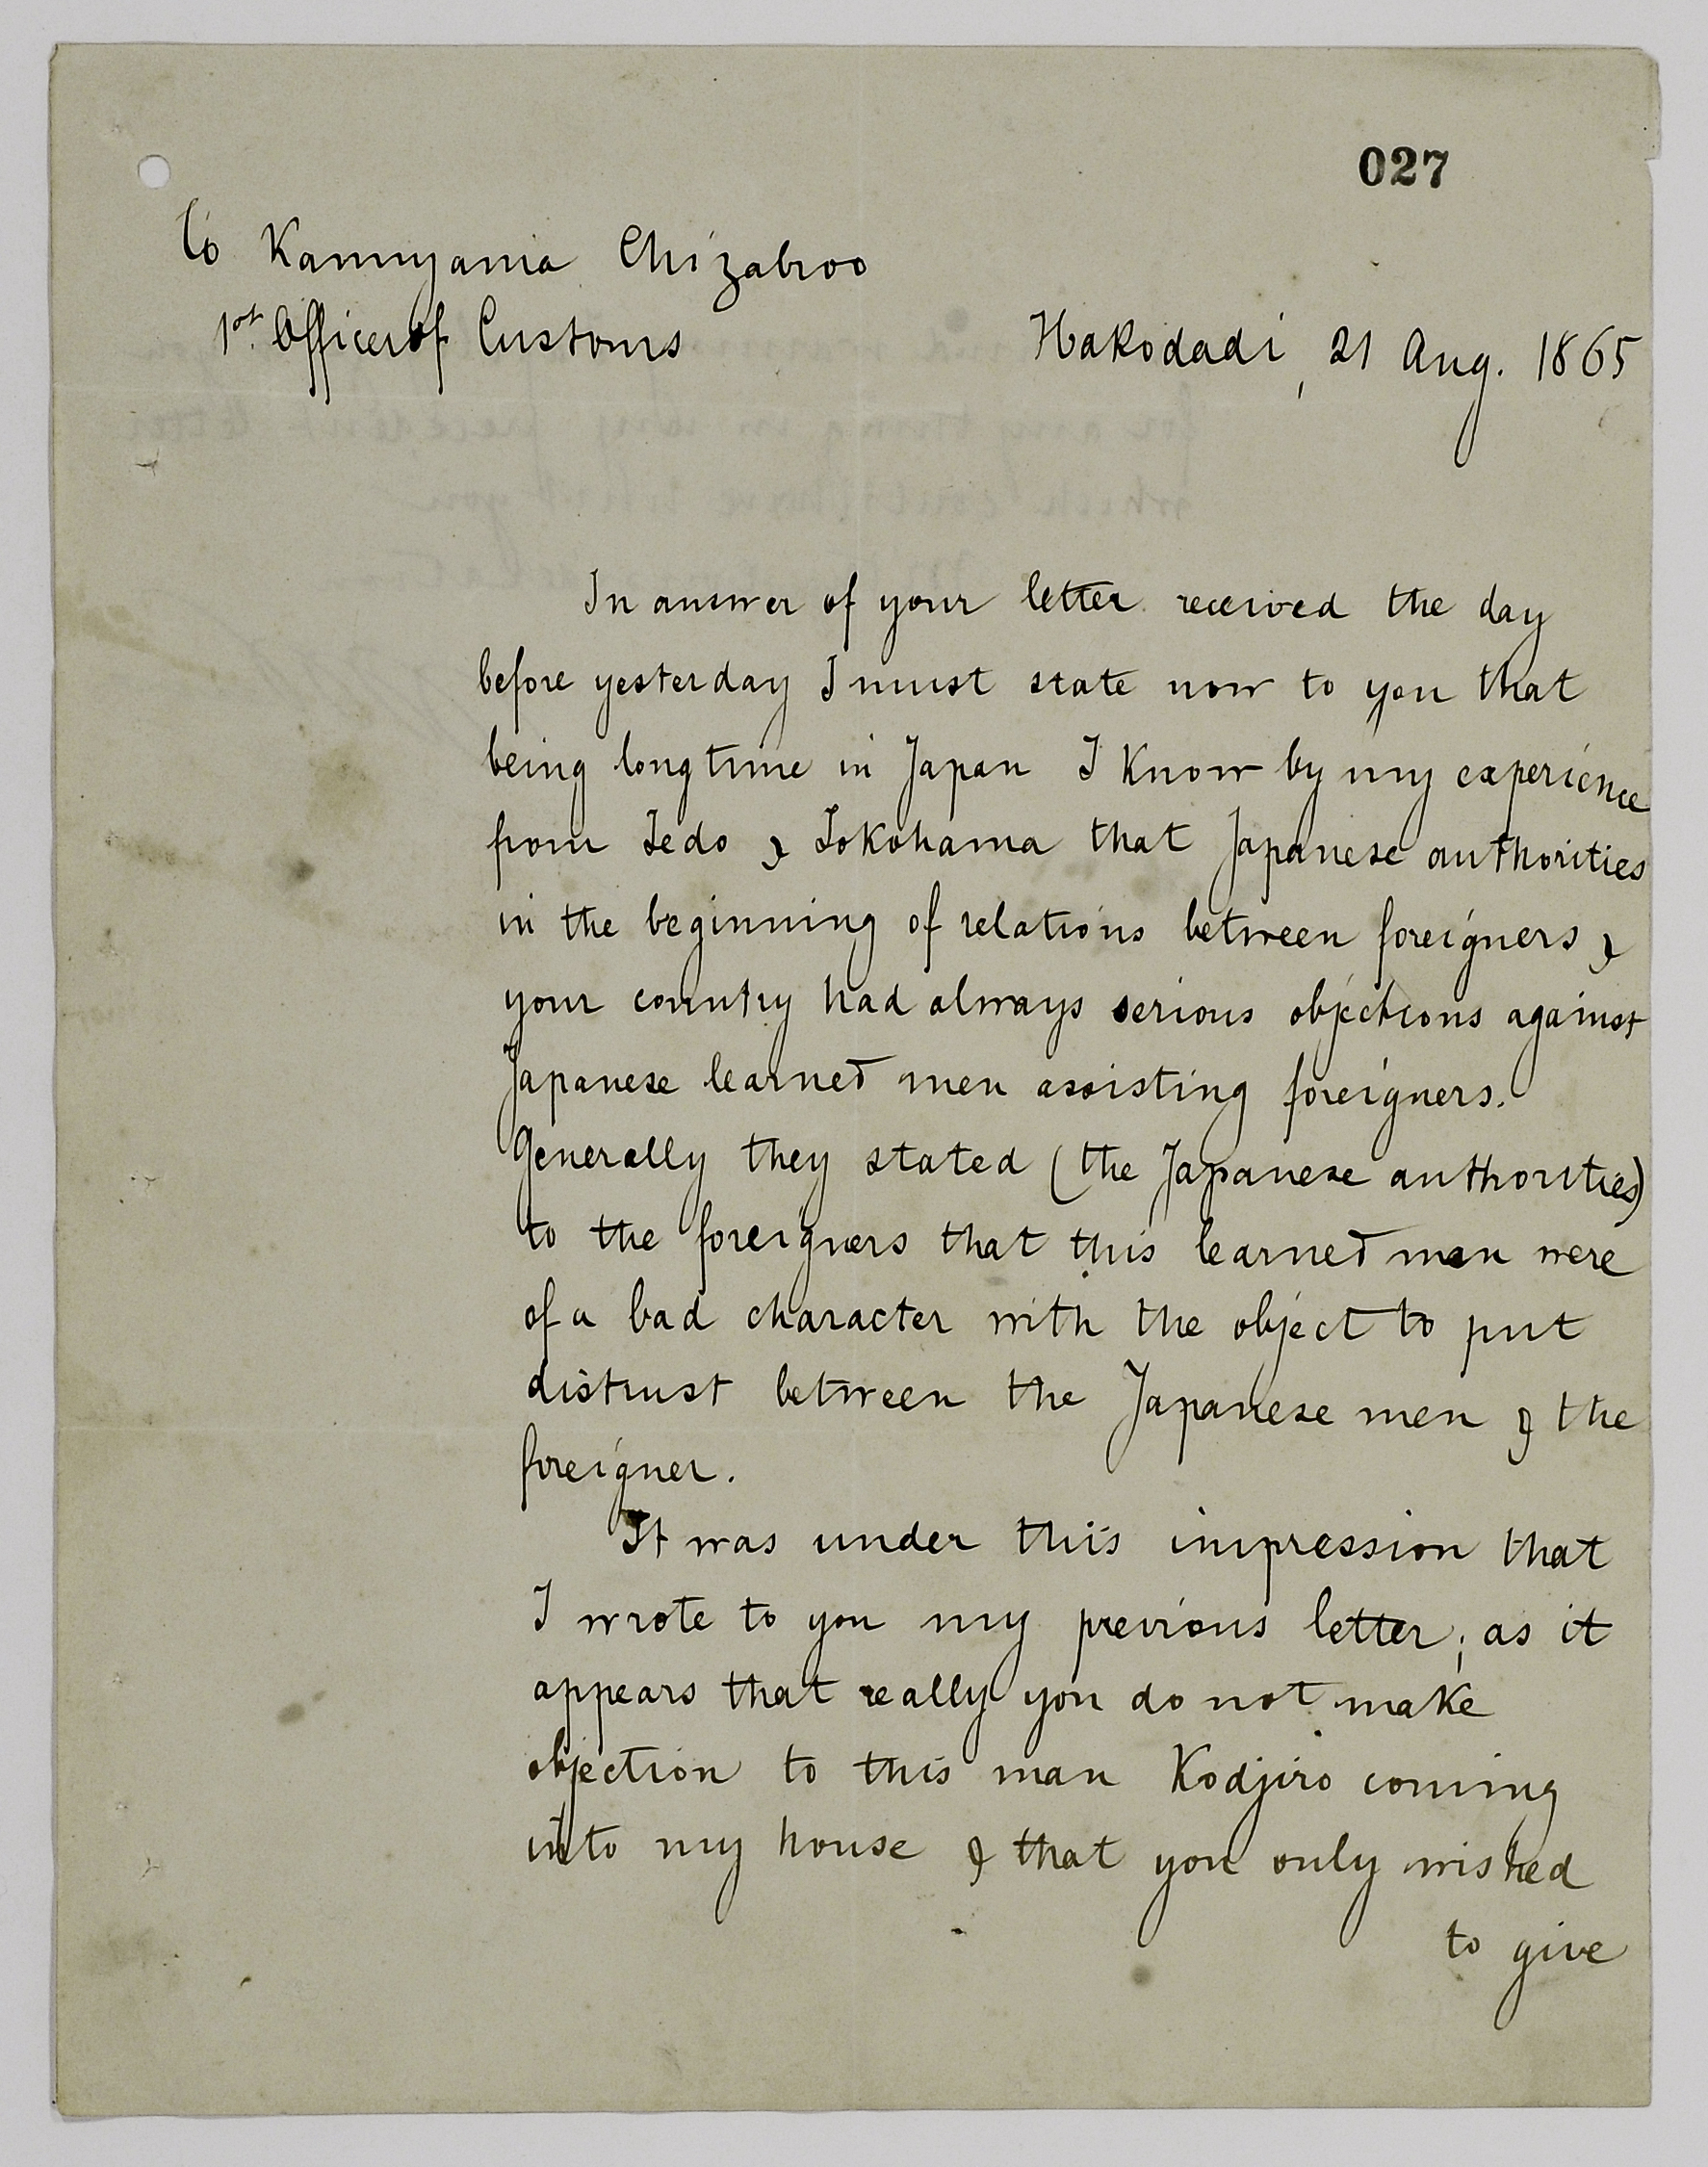 027
To Kamuyama Chizabroo
1st. Officer of Customs
Hakodadi, 21 Aug. 1865
In answer of your letter received the day
before yesterday I must state now to you that
being long time in Japan I know by my experience
from Iedo & Iokohama that Japanese authorities
in the beginning of relations between foreigners &
your country had always serious objections against
Japanese learned men assisting foreigners.
Generally they stated (the Japanese authorities)
to the foreigners that this learned men were
of a bad character with the object to put
distrust between the Japanese men & the
foreigner.
It was under this impression that
I wrote to you my previous letter; as it
appears that really you do not make
objection to this man Kodjiro coming
into my house & that you only wished
to give